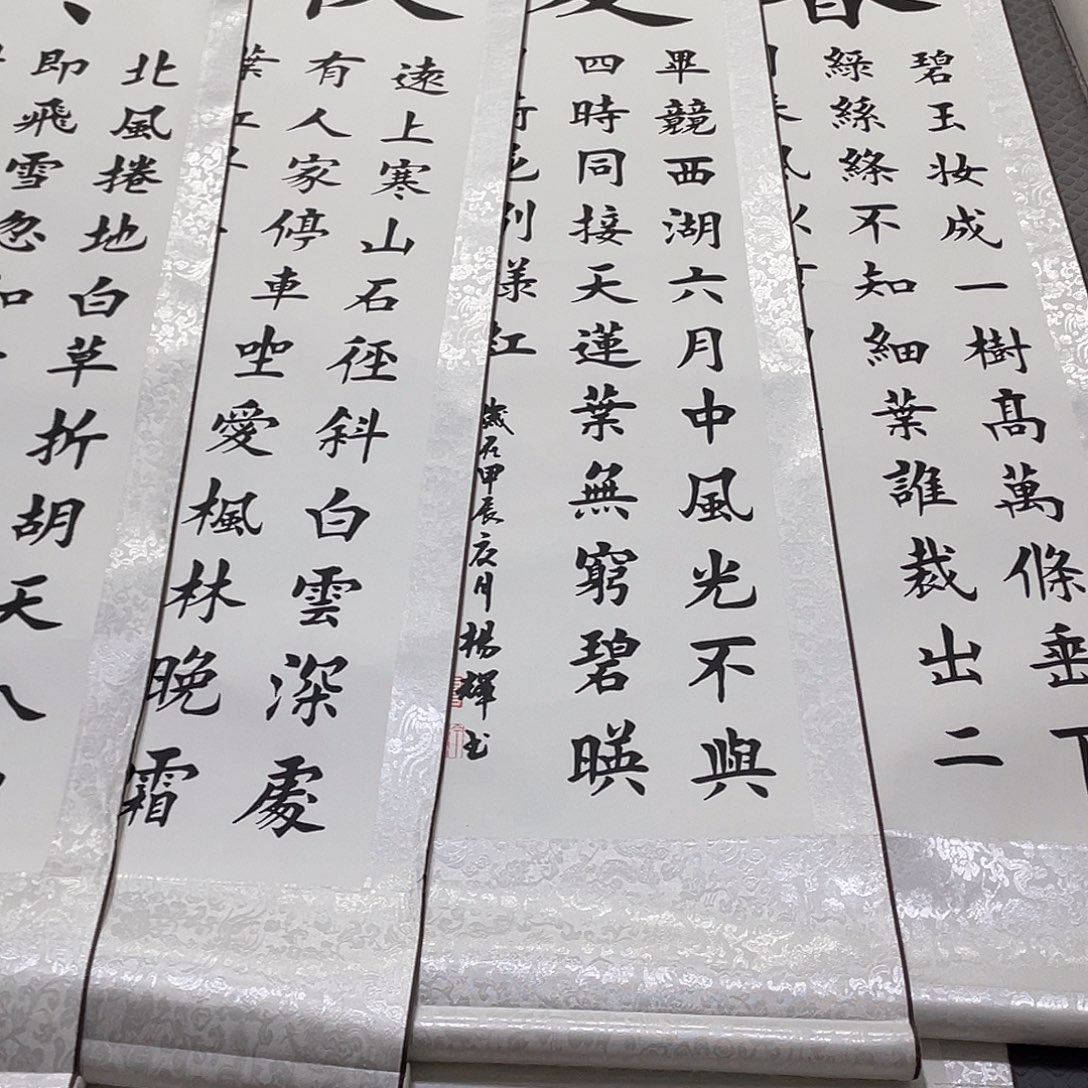 春
碧玉妆成一樹高萬條垂下
綠絲絛不知細葉誰裁出二
夏
畢競西湖六月中風光不與
四時同接天蓮葉無窮碧暎
別樣紅
甲辰 月楊輝书
遠上寒山石徑斜白雲深處
有人家停車坐愛楓林晚霜
葉紅
北風捲地白草折胡天八
即飛雪忽如